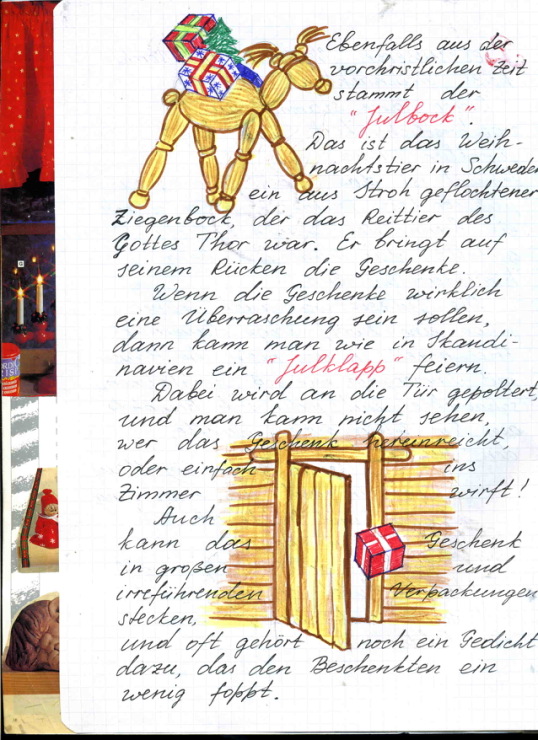 Ebenfalls aus der
vorchristlichen Zeit
stammt der
"Julbock".
Das ist das Weih-
nachtstier in Schweden
ein aus Stroh geflochtener
Ziegenbock, der das Reittier des
Gottes Thor war. Er bringt auf
seinem Rücken die Geschenke.
Wenn die Geschenke wirklich
eine Überraschung sein sollen,
dann kann man wie in Skandi-
navien ein "Julklapp" feiern.
Dabei wird an die Tür gepoltert,
und man kann nicht sehen,
wer das Geschenk hereinreicht,
oder einfach ins
Zimmer wirft!
Auch
kann das Geschenk
in großen und
irreführenden Verpackungen
stecken,
und oft gehört noch ein Gedicht
dazu, das den Beschenkten ein
wenig foppt.